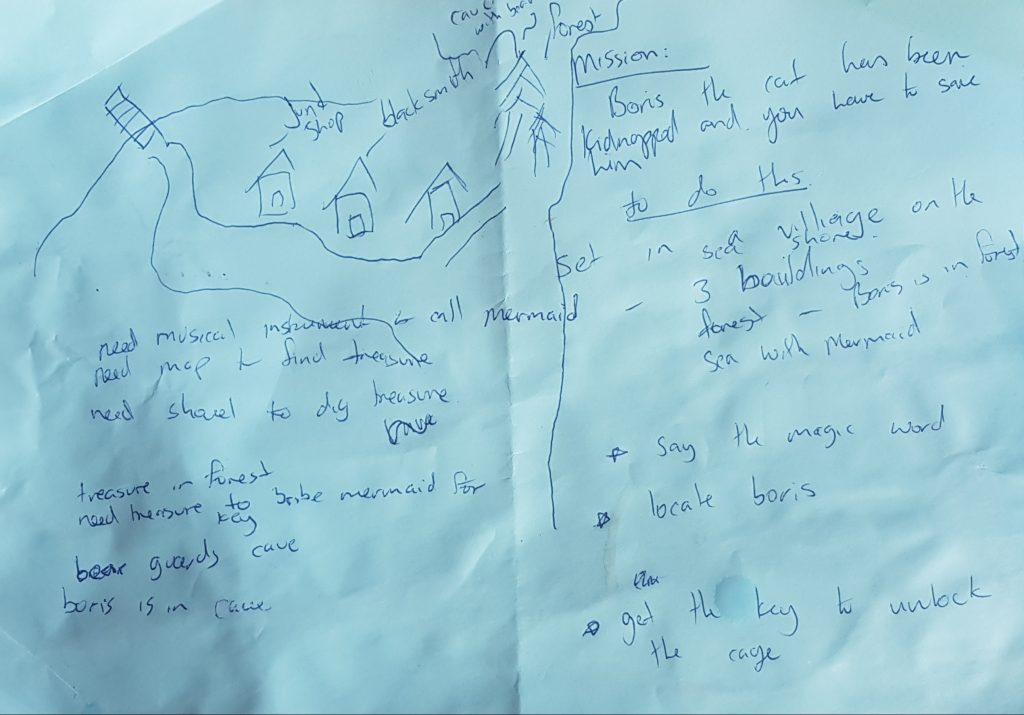 cave
with bear
forest
junk
shop
blacksmith
need musical instrument to call mermaid
need map to find treasure
need shovel to dig treasure
cave
treasure in forest
need treasure to bribe mermaid for
key
bear guards cave
boris is in cave
Mission:
Boris the cat has been
kidnapped and you have to save
him
to do this.
Set in sea village on the
shore.
3 bauldings
forest - Boris is in forest
sea with mermaid
say the magic word
locate boris
get the key to unlock
the cage